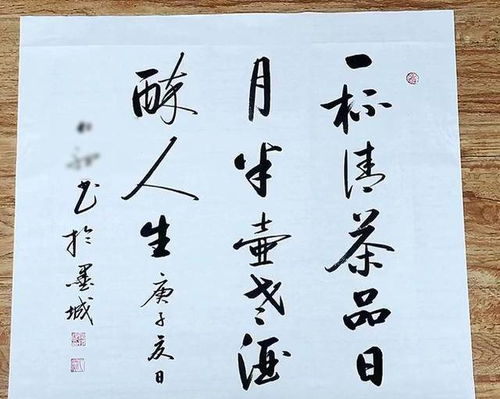 一杯清茶品日
月半壺老酒
醉人生 庚子夏日
书於墨城